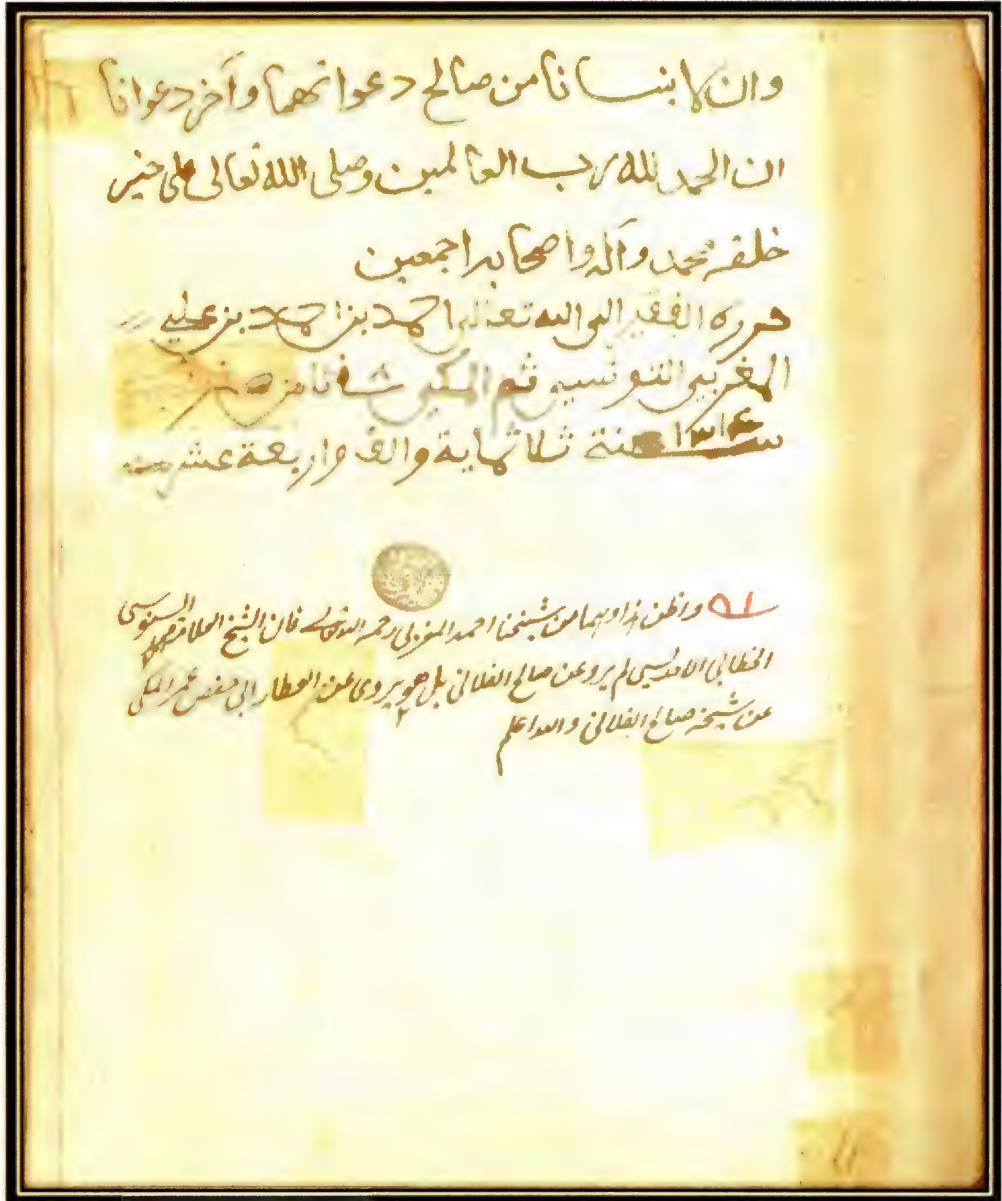 وان لا ينسانا من صالح دعواتهما وآخر دعوانا
ان الحمد لله رب العالمين وصلى الله تعالى على خير
خلقه محمد وآله واصحابه اجمعين
حرره الفقير الى الله تعالى احمد بن احمد بن علي
المغربي التونسي ثم المكي في ٨ ثامن صفر
١٣١٤ سنة ثلاثماية والف واربعة عشر
واظن هذا وهما من شيخنا احمد المغربي رحمه الله تعالى فان الشيخ العلامة محمد السنوسي
الخطابي الادريسي لم يرو عن صالح الفلاني بل هو يروى عن العطار ابى حفص عمر المكى
عن شيخه صالح الفلاني والله اعلم